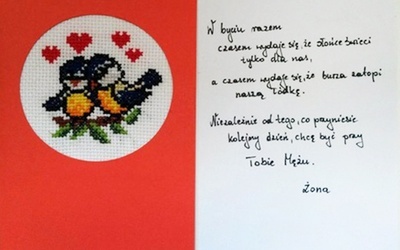 W byciu razem
czasem wydaje się, że słońce świeci
tylko dla nas,
a czasem wydaje się, że burza zatopi
naszą łódkę.
Niezależnie od tego, co przyniesie
kolejny dzień, chcę być przy
Tobie Mężu.
Żona